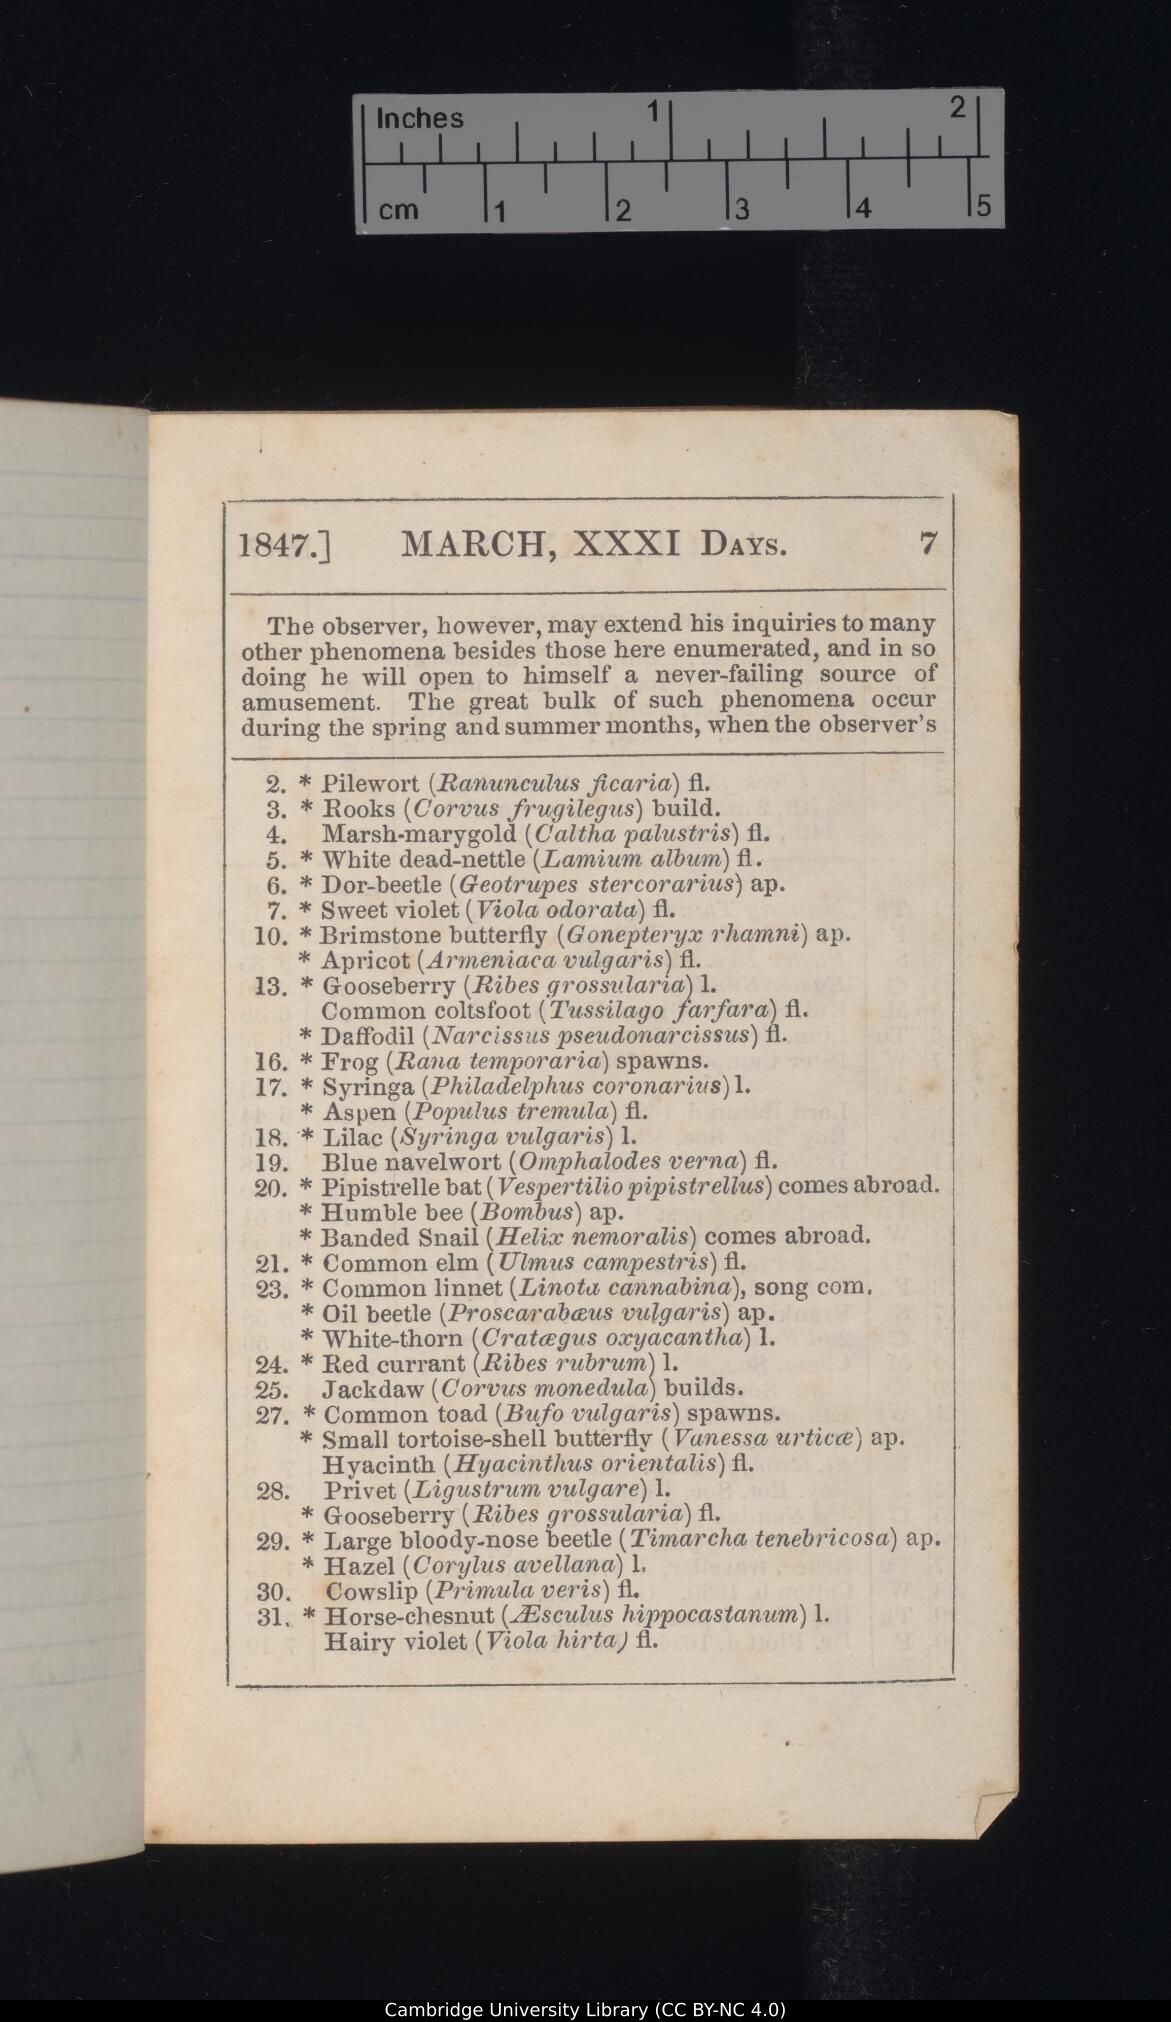 Inches 1 2
cm 1 2 3 4 5
1847.] MARCH, XXXI DAYS. 7
The observer, however, may extend his inquiries to many
other phenomena besides those here enumerated, and in so
doing he will open to himself a never-failing source of
amusement. The great bulk of such phenomena occur
during the spring and summer months, when the observer's
2. * Pilewort (Ranunculus ficaria) fl.
3. * Rooks (Corvus frugilegus) build.
4. Marsh-marygold (Caltha palustris) fl.
5. * White dead-nettle (Lamium album) fl.
6. * Dor-beetle (Geotrupes stercorarius) ap.
7. * Sweet violet (Viola odorata) fl.
10. * Brimstone butterfly (Gonepteryx rhamni) ap.
* Apricot (Armeniaca vulgaris) fl.
13. * Gooseberry (Ribes grossularia) l.
Common coltsfoot (Tussilago farfara) fl.
* Daffodil (Narcissus pseudonarcissus) fl.
16. * Frog (Rana temporaria) spawns.
17. * Syringa (Philadelphus coronarius) l.
* Aspen (Populus tremula) fl.
18. * Lilac (Syringa vulgaris) l.
19. Blue navelwort (Omphalodes verna) fl.
20. * Pipistrelle bat (Vespertilio pipistrellus) comes abroad.
* Humble bee (Bombus) ap.
* Banded Snail (Helix nemoralis) comes abroad.
21. * Common elm (Ulmus campestris) fl.
23. * Common linnet (Linota cannabina), song com.
* Oil beetle (Proscarabæus vulgaris) ap.
* White-thorn (Cratægus oxyacantha) l.
24. * Red currant (Ribes rubrum) l.
25. Jackdaw (Corvus monedula) builds.
27. * Common toad (Bufo vulgaris) spawns.
* Small tortoise-shell butterfly (Vanessa urticæ) ap.
Hyacinth (Hyacinthus orientalis) fl.
28. Privet (Ligustrum vulgare) l.
* Gooseberry (Ribes grossularia) fl.
29. * Large bloody-nose beetle (Timarcha tenebricosa) ap.
* Hazel (Corylus avellana) l.
30. Cowslip (Primula veris) fl.
31. * Horse-chesnut (Æsculus hippocastanum) l.
Hairy violet (Viola hirta) fl.
Cambridge University Library (CC BY-NC 4.0)